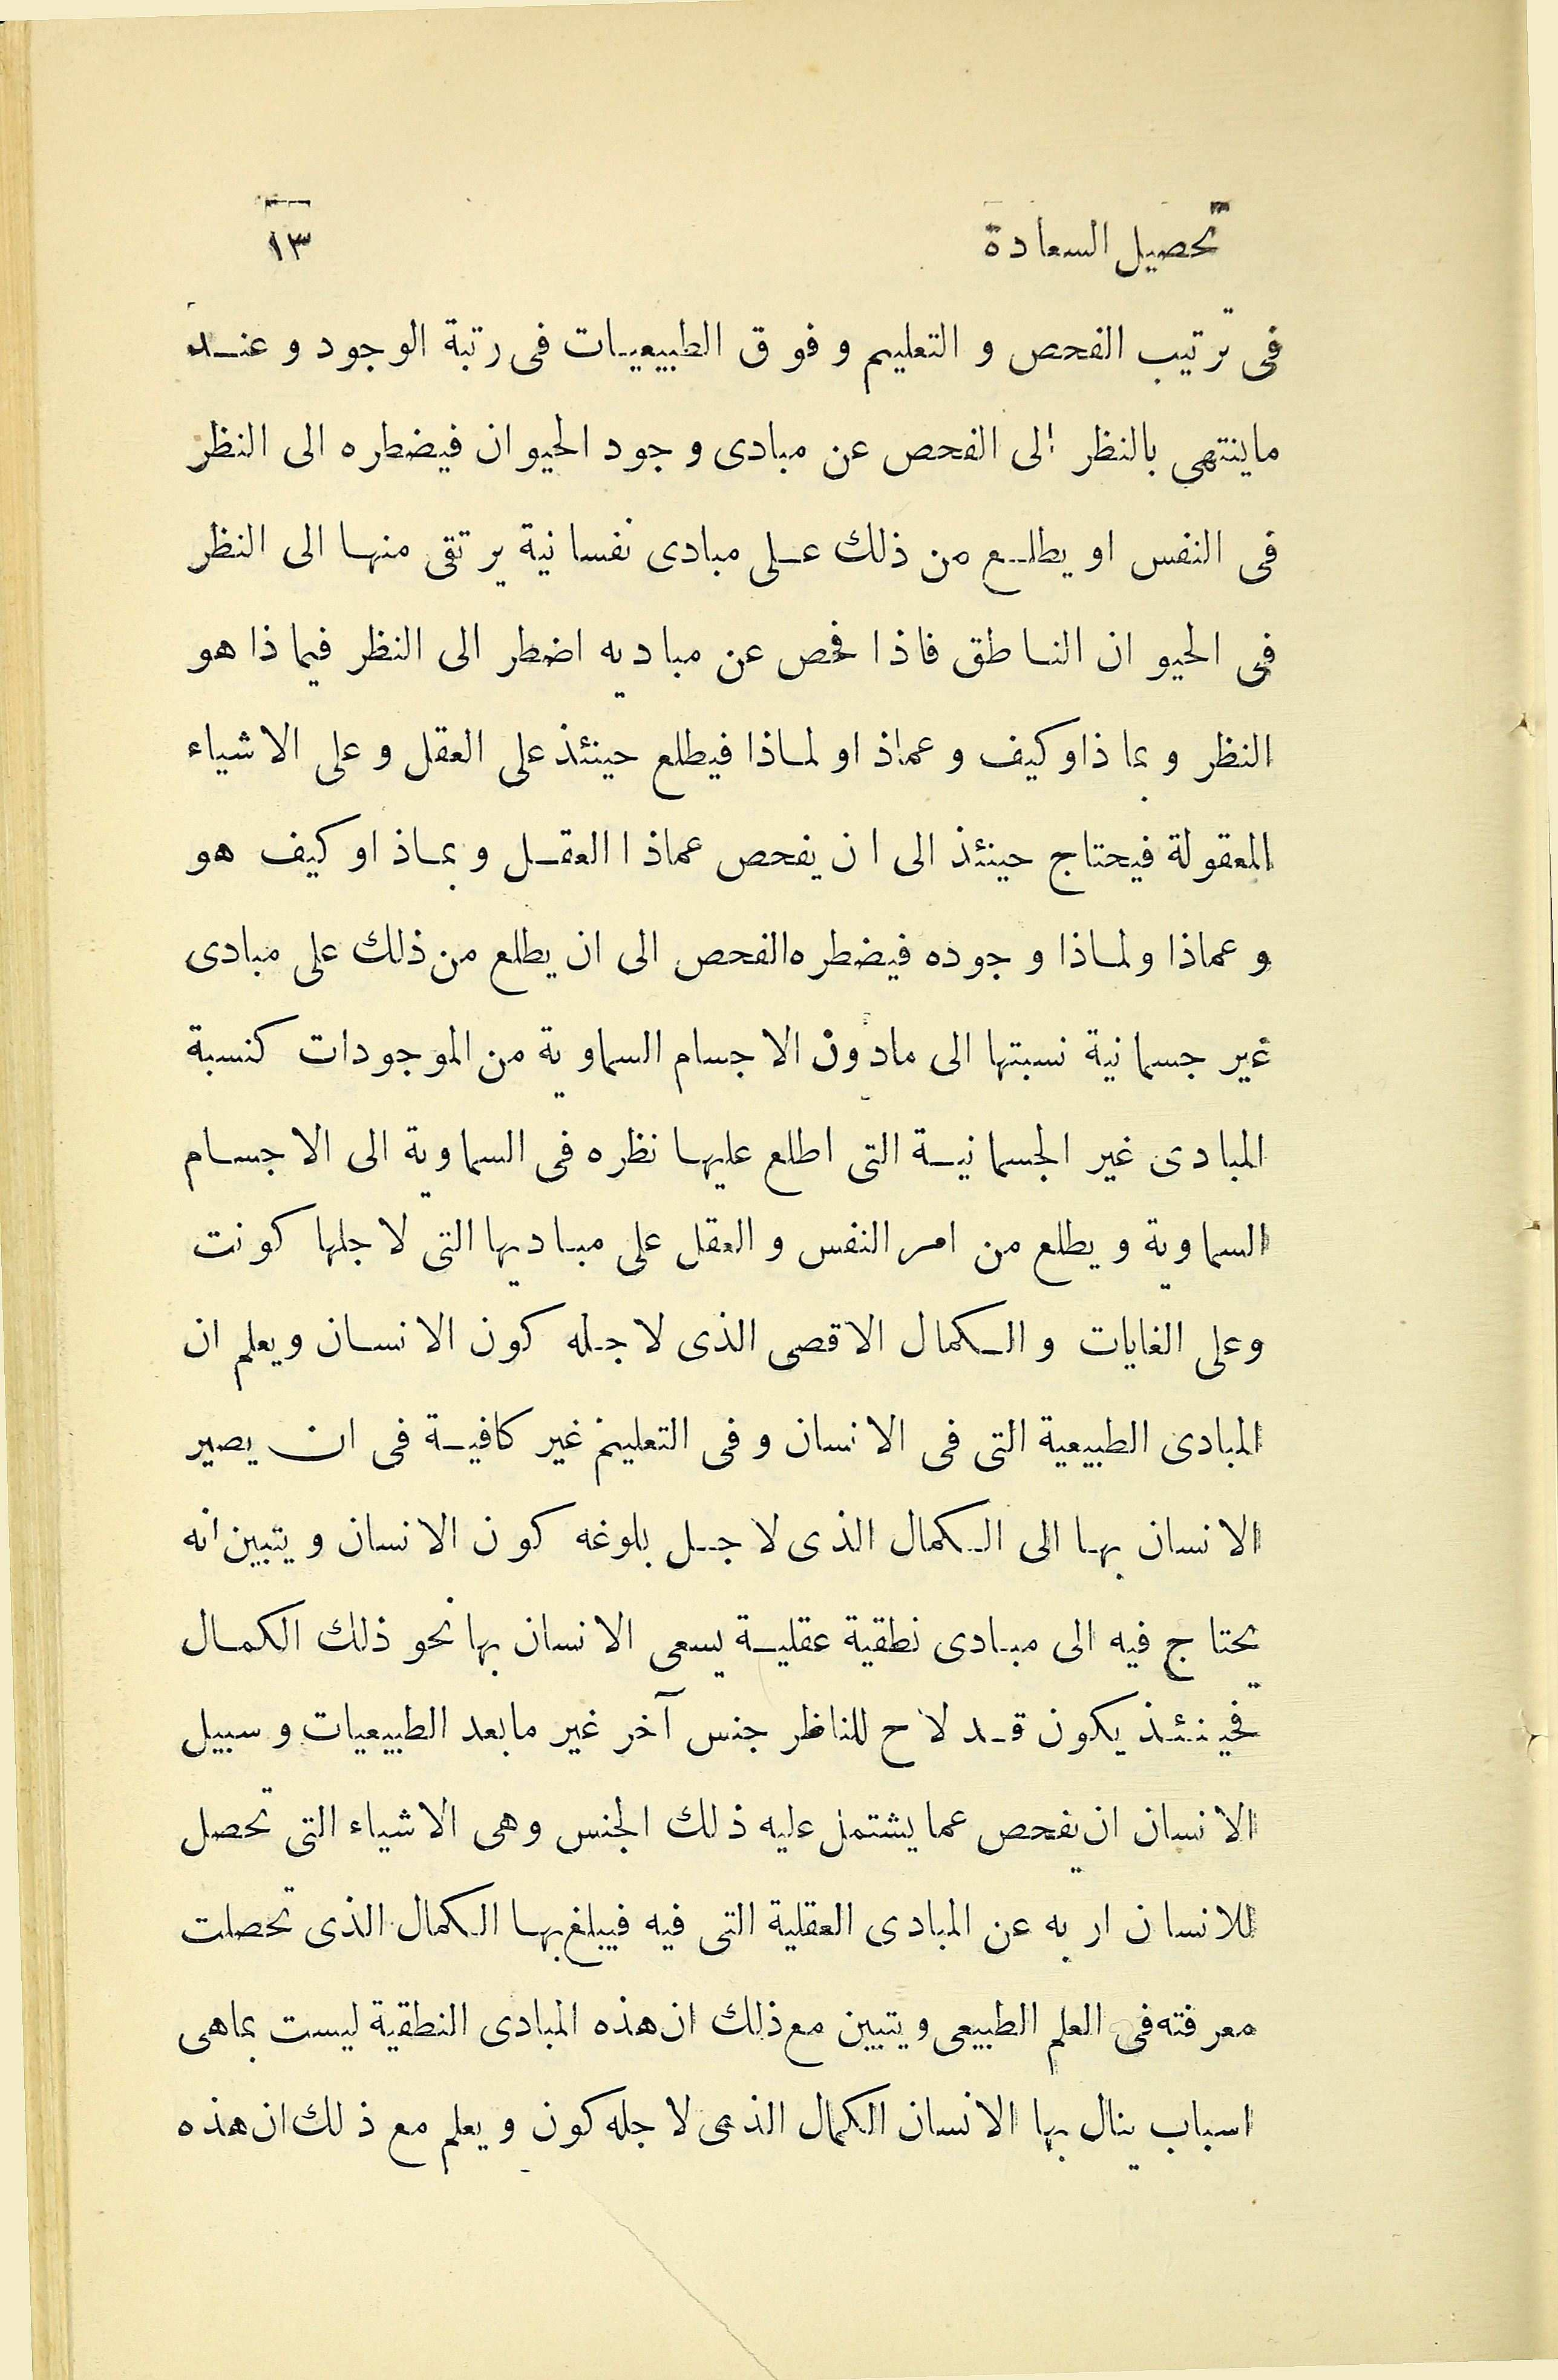 تحصيل السعادة ١٣
فى ترتيب الفحص و التعليم و فوق الطبيعيات فى رتبة الوجود و عند
ماينتهى بالنظر الى الفحص عن مبادى وجود الحيوان فيضطره الى النظر
فى النفس او يطلع من ذلك على مبادى نفسانية يرتقى منها الى النظر
فى الحيوان الناطق فاذا فحص عن مباديه اضطر الى النظر فيما ذا هو
النظر و بما ذاوكيف و عماذ اولماذا فيطلع حينئذ على العقل و على الاشياء
المعقولة فيحتاج حينئذ الى ان يفحص عماذا العقل و بماذ اوكيف هو
و عماذا ولماذا وجوده فيضطره الفحص الى ان يطلع من ذلك على مبادى
غير جسمانية نسبتها الى مادون الاجسام السماوية من الموجودات كنسبة
المبادى غير الجسمانية التى اطلع عليها نظره فى السماوية الى الاجسام
السماوية و يطلع من امر النفس و العقل على مباديها التى لاجلها كونت
وعلى الغايات و الكمال الاقصى الذى لاجله كون الانسان ويعلم ان
المبادى الطبيعية التى فى الانسان و فى التعليم غير كافية فى ان يصير
الانسان بها الى الكمال الذى لاجل بلوغه كون الانسان و يتبين انه
يحتاج فيه الى مبادى نطقية عقلية يسعى الانسان بها نحو ذلك الكمال
فحينئذ يكون قد لاح للناظر جنس آخر غير مابعد الطبيعيات و سبيل
الانسان ان يفحص عما يشتمل عليه ذلك الجنس وهى الاشياء التى تحصل
للانسان اربه عن المبادى العقلية التى فيه فيبلغ بها الكمال الذى تحصلت
معرفته فى العلم الطبيعى و يتبين مع ذلك ان هذه المبادى النطقية ليست بماهى
اسباب ينال بها الانسان الكمال الذى لاجله كون و يعلم مع ذلك ان هذه